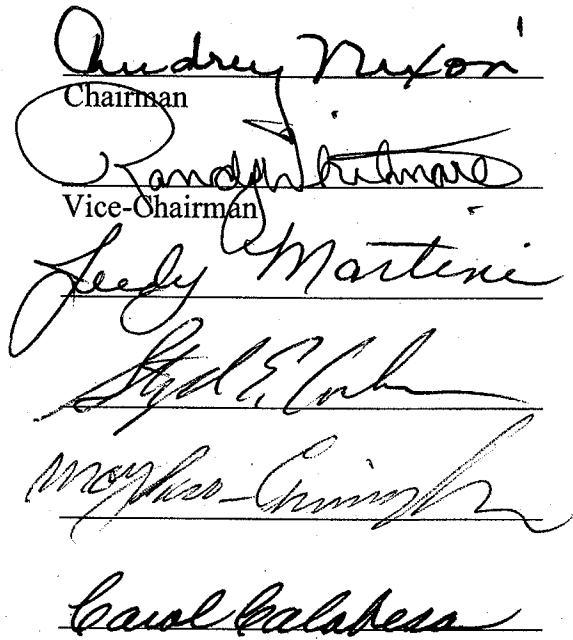 Audrey Nixon
Chairman
Randy Whitmore
Vice-Chairman
Judy Martini
E.
Carol Calabresa